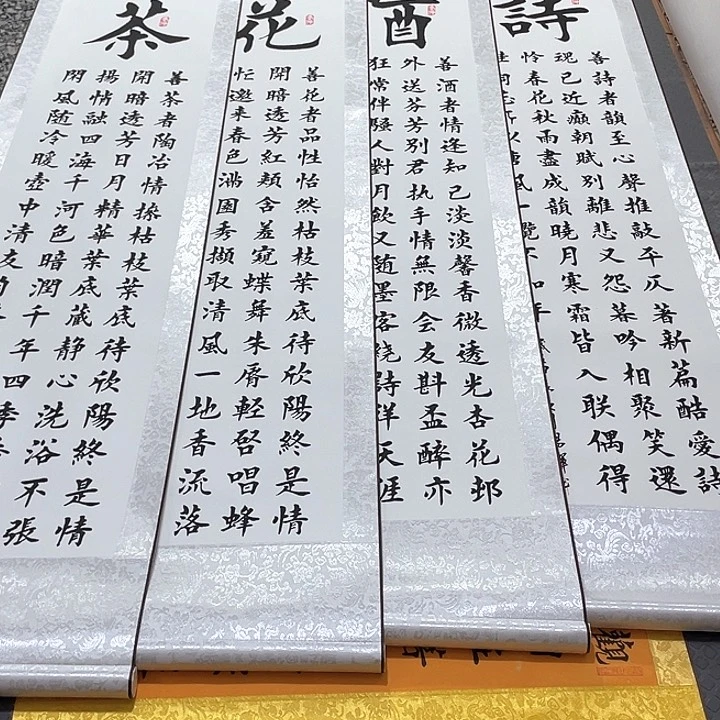 詩
善詩者韻至心聲推敲平仄著新篇酷愛詩
魂已近癲朝賦別離悲又怨暮吟相聚笑還
怜春花秋雨盡成韻曉月寒霜皆入联偶得
風一覽
酒
善酒者情逢知已淡淡馨香微透光杏花邨
外送芬芳別君执手情無限会友斟盃醉亦
狂常伴騷人對月飲又随墨客繞詩徉天涯
花
善花者品性怡然枯枝葉底待欣陽終是情
開暗透芳紅頰含羞窺蝶舞朱脣輕啓唱蜂
忙邀来春色滿園秀擷取清風一地香流落
茶
善茶者陶冶情操枯枝葉底待欣陽終是情
開暗透芳日月精華葉底蔵静心洗浴不張
揚情融四海千河色暗潤千年四季
閑風随冷暖壺中清友